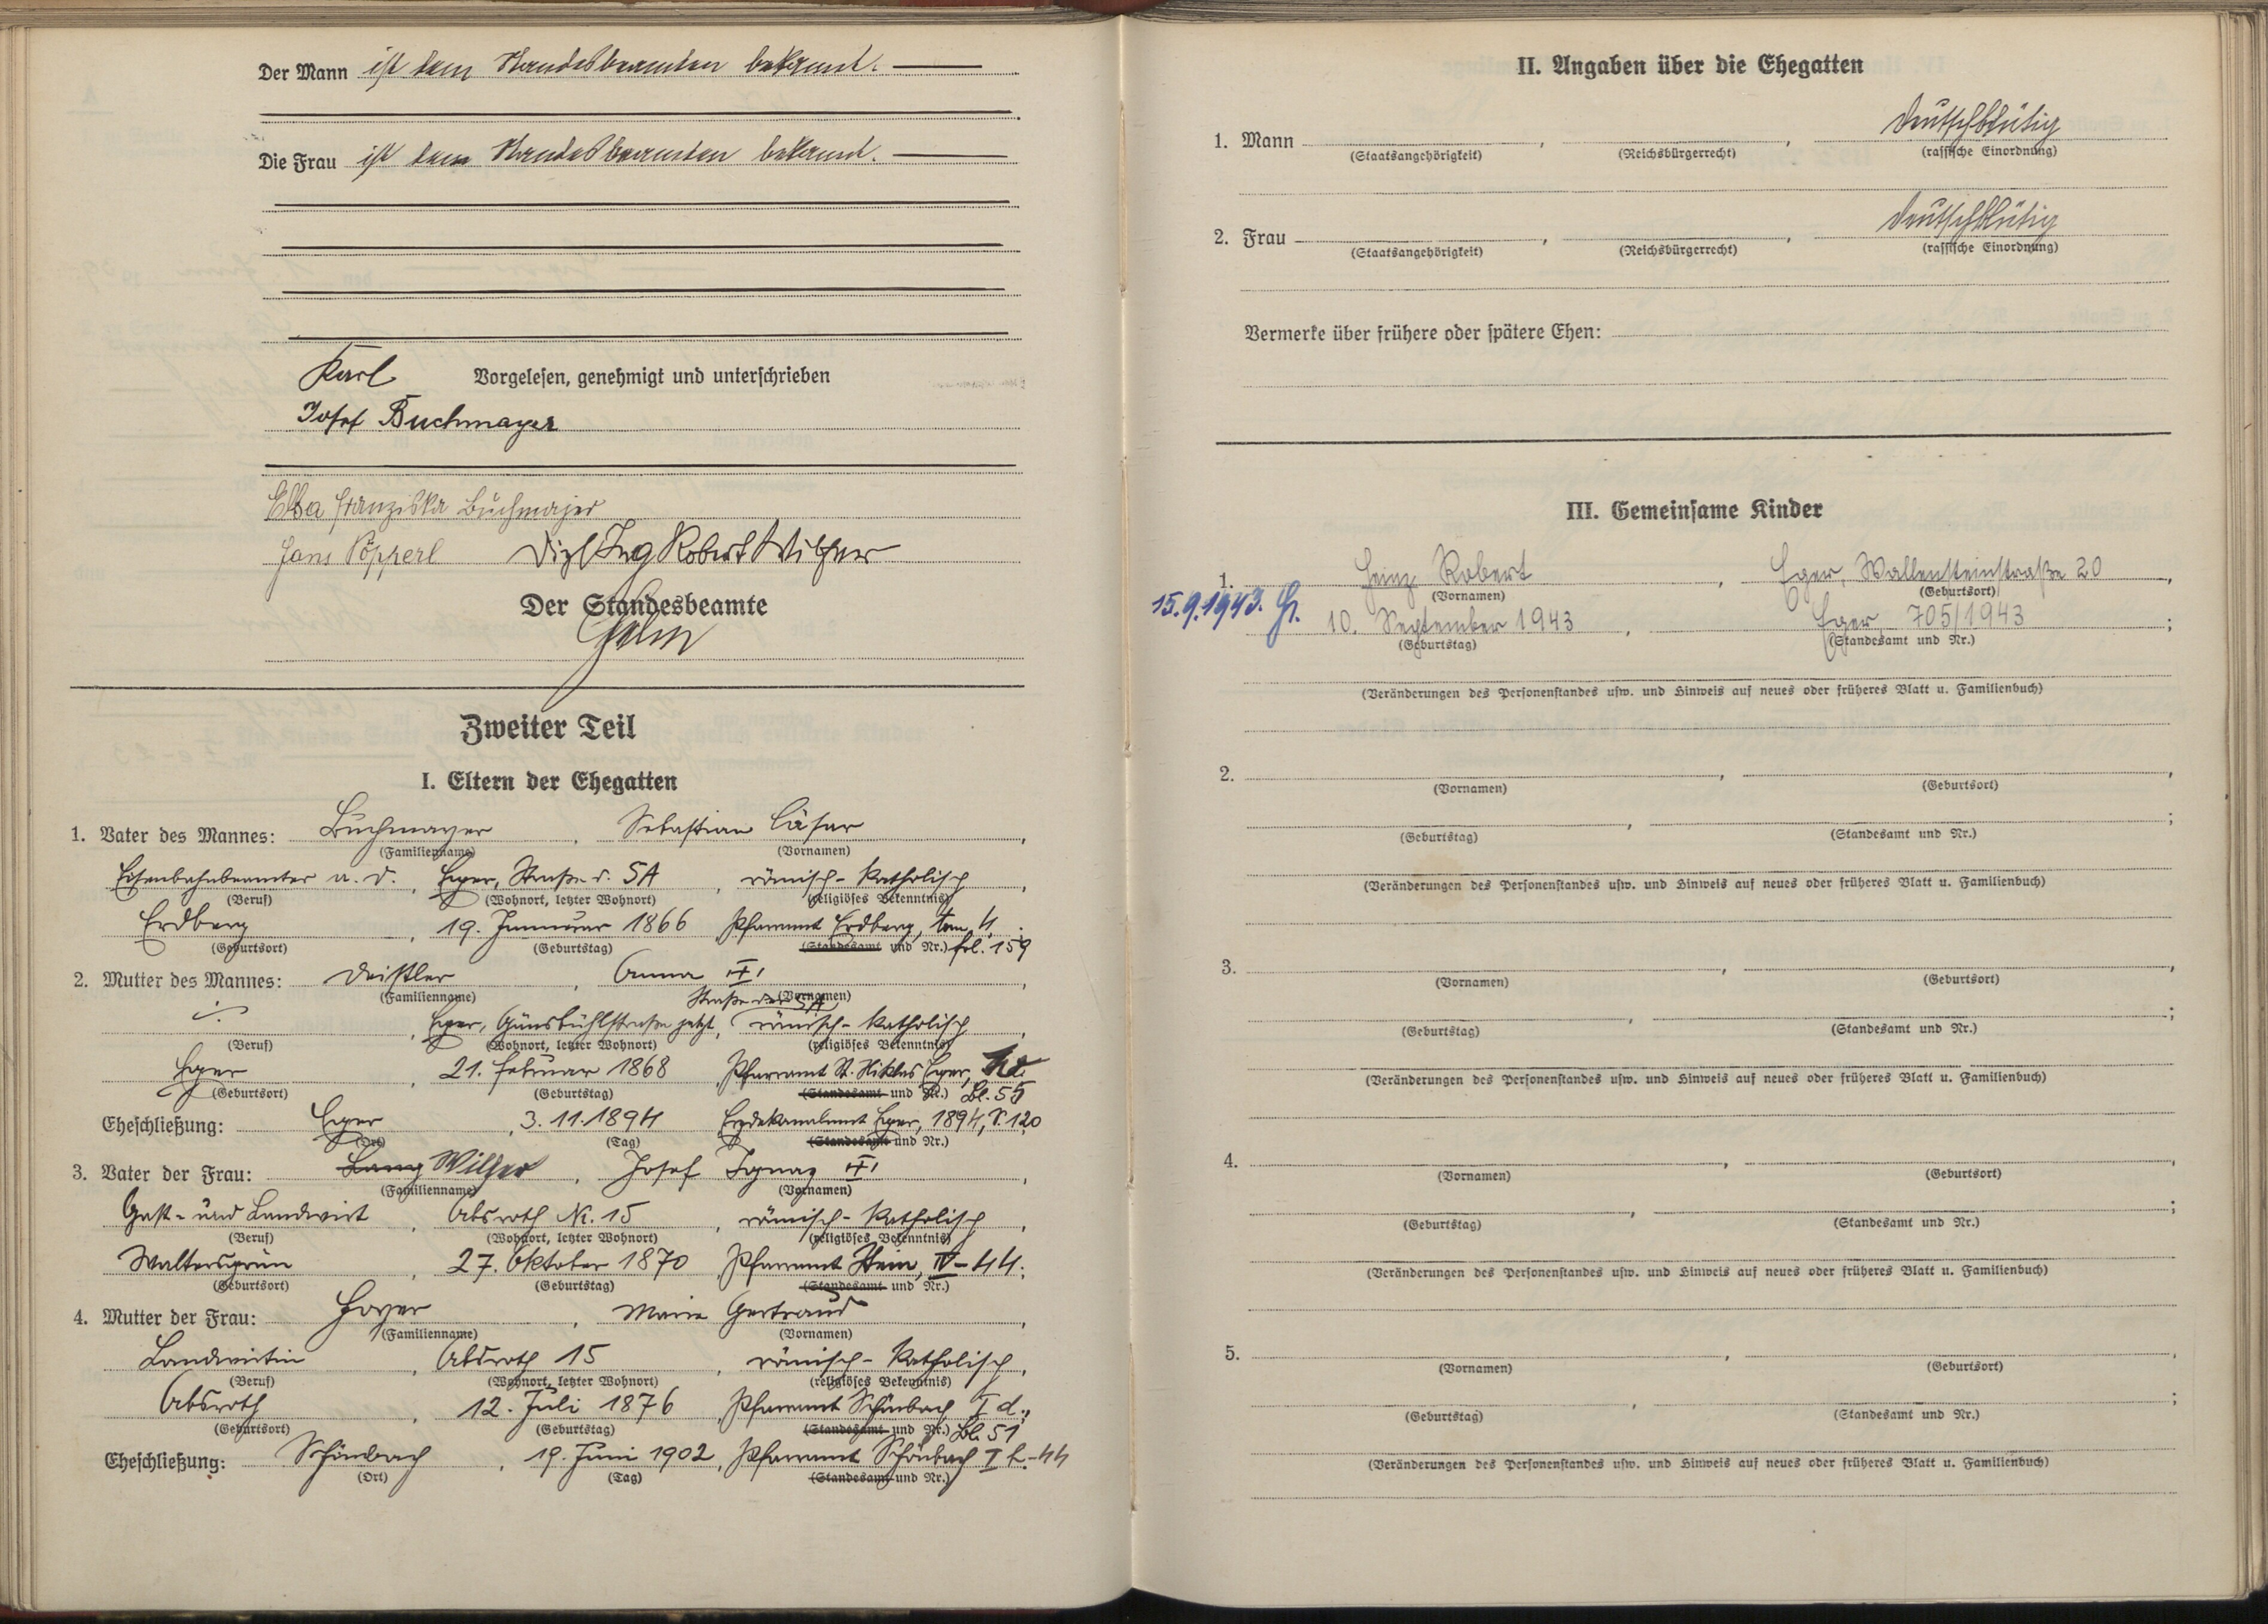 Der Mann ist dem Standesbeamten bekannt.
Die Frau ist dem Standesbeamten bekannt.
Karl Vorgelesen, genehmigt und unterschrieben
Josef Buchmayer
Elsa Franziska Buchmayer
Hans Pöpperl Dipl Ing Robert Wilfer
Der Standesbeamte
Zweiter Teil
I. Eltern der Ehegatten
1. Vater des Mannes: Buchmayer, Sebastian Cäsar,
(Familienname) (Vornamen)
Eisenbahnbeamter a. D., Eger, Straße d. SA, römisch-katholisch,
(Beruf) (Wohnort, letzter Wohnort) (religiöses Bekenntnis)
Erdberg, 19. Jannuar 1866, Pfarramt Erdberg, tom 4;
(Geburtsort) (Geburtstag) (Standesamt und Nr.) fol. 159
2. Mutter des Mannes: Deistler, Anna
(Familienname) (Vornamen)
Straße der SA
Eger, jetzt, römisch-katholisch,
(Beruf) (Wohnort, letzter Wohnort) (religiöses Bekenntnis)
Eger, 21. Februar 1868, Pfarramt St. Niklas Eger,
(Geburtsort) (Geburtstag) (Standesamt und Nr.) Bl. 55
Eheschließung: Eger, 3.11.1894, Erzdekanalamt Eger, 1894, S. 120
(Ort) (Tag) (Standesamt und Nr.)
3. Vater der Frau: Wilfer, Josef Ignaz
(Familienname) (Vornamen)
Gast- und Landwirt, Absroth Nr. 15, römisch-katholisch,
(Beruf) (Wohnort, letzter Wohnort) (religiöses Bekenntnis)
Waltersgrün, 27. Oktober 1870, Pfarramt Stein, IV-44;
(Geburtsort) (Geburtstag) (Standesamt und Nr.)
4. Mutter der Frau: Hoyer, Marie Gertraud,
(Familienname) (Vornamen)
Landwirtin, Absroth 15, römisch-katholisch,
(Beruf) (Wohnort, letzter Wohnort) (religiöses Bekenntnis)
Absroth, 12. Juli 1876, Pfarramt Schönbach I d.,
(Geburtsort) (Geburtstag) (Standesamt und Nr.) Bl. 51
Eheschließung: Schönbach, 19. Juni 1902, Pfarramt Schönbach I
(Ort) (Tag) (Standesamt und Nr.)
II. Angaben über die Ehegatten
1. Mann , , Deutschblütig
(Staatsangehörigkeit) (Reichsbürgerrecht) (rassische Einordnung)
2. Frau , , Deutschblütig
(Staatsangehörigkeit) (Reichsbürgerrecht) (rassische Einordnung)
Vermerke über frühere oder spätere Ehen:
III. Gemeinsame Kinder
1. Heinz Robert, Eger, Wallensteinstraße 20,
(Vornamen) (Geburtsort)
15.9.1943. 10. September 1943, Eger, 705/1943;
(Geburtstag) (Standesamt und Nr.)
(Veränderungen des Personenstandes usw. und Hinweis auf neues oder früheres Blatt u. Familienbuch)
2. , ,
(Vornamen) (Geburtsort)
, ;
(Geburtstag) (Standesamt und Nr.)
(Veränderungen des Personenstandes usw. und Hinweis auf neues oder früheres Blatt u. Familienbuch)
3. , ,
(Vornamen) (Geburtsort)
, ;
(Geburtstag) (Standesamt und Nr.)
(Veränderungen des Personenstandes usw. und Hinweis auf neues oder früheres Blatt u. Familienbuch)
4. , ,
(Vornamen) (Geburtsort)
, ;
(Geburtstag) (Standesamt und Nr.)
(Veränderungen des Personenstandes usw. und Hinweis auf neues oder früheres Blatt u. Familienbuch)
5. , ,
(Vornamen) (Geburtsort)
, ;
(Geburtstag) (Standesamt und Nr.)
(Veränderungen des Personenstandes usw. und Hinweis auf neues oder früheres Blatt u. Familienbuch)